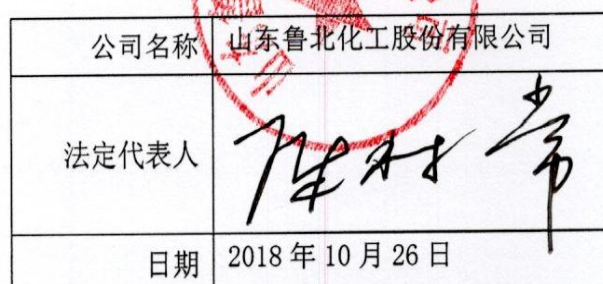 公司名称 山东鲁北化工股份有限公司
法定代表人
日期 2018年10月26日